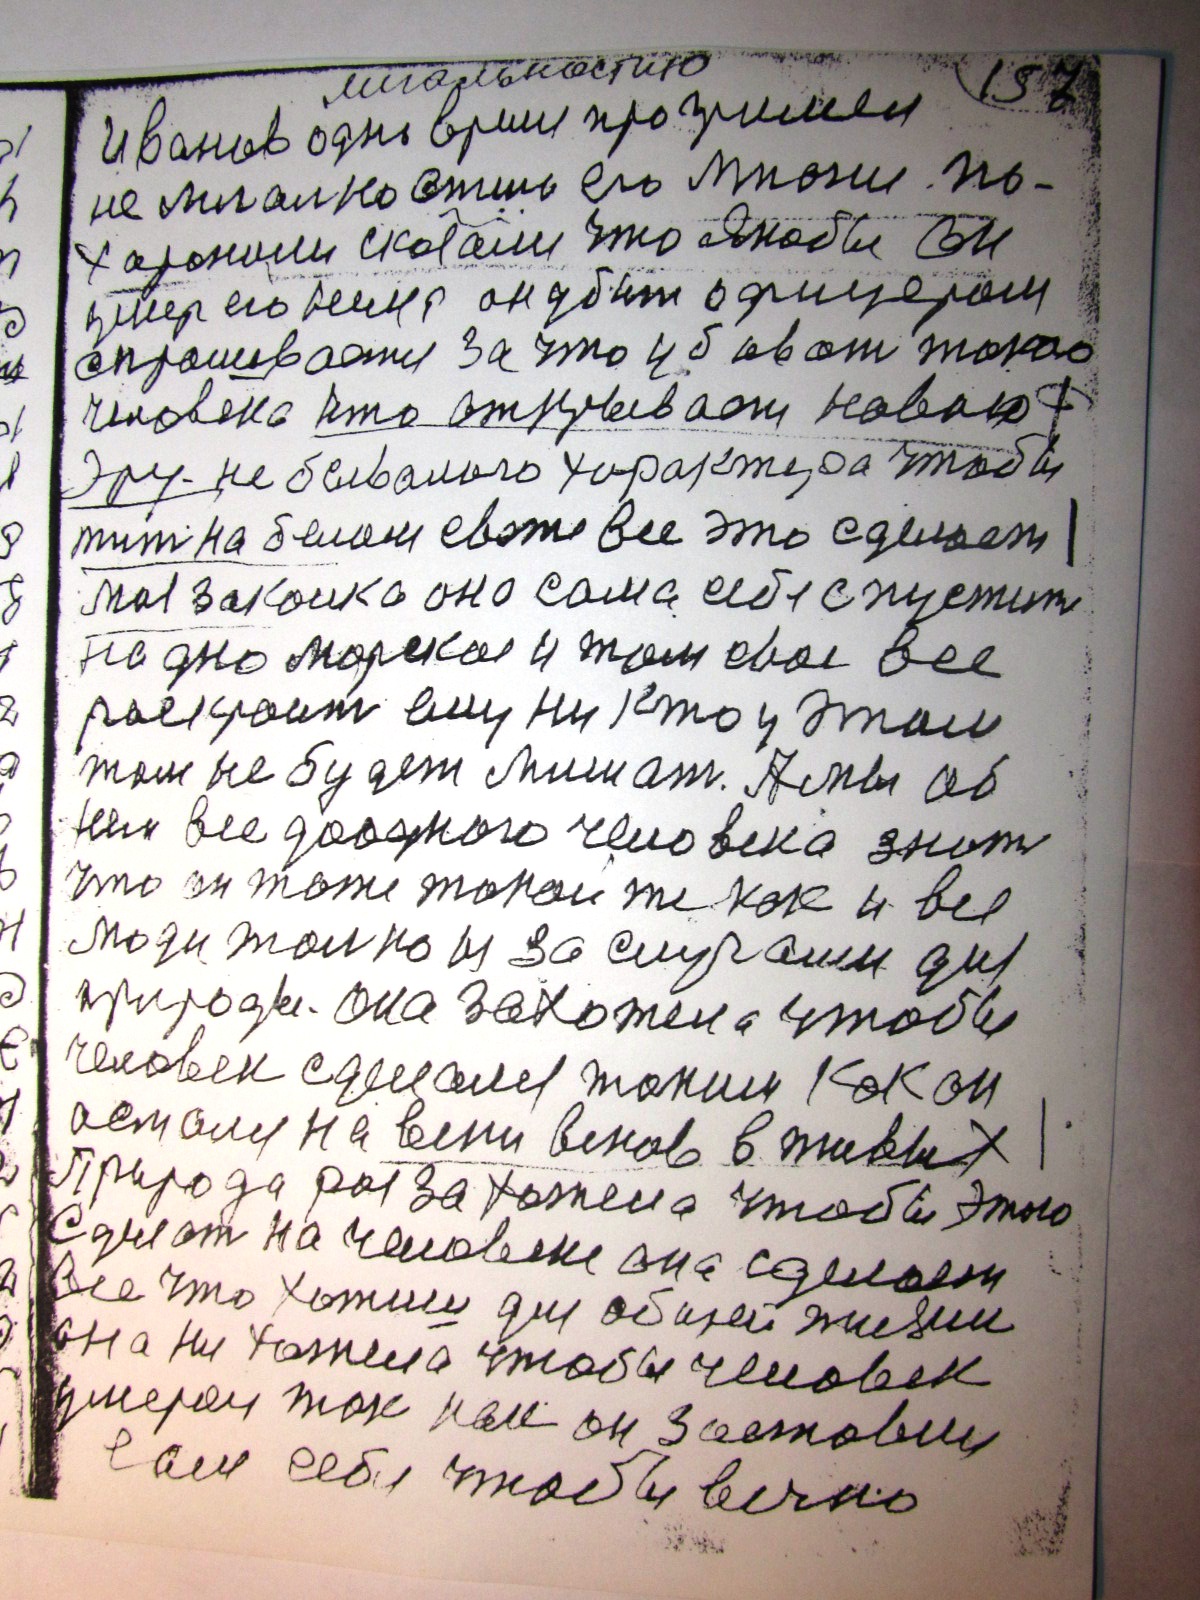 мигальностию
157
Иванов одно время про зримел
не мигалко стию его мнози по-
харонили сказали что якобы он
умер его немя он убит офицером
спрошивается за что убивают токого
человека кто открывает новаю
эру. не бывалого характера чтобы
тит на белом свете все это сделает
моя закалка она сама себя спустит
на дно морское и там свое все
роскроит ему ни кто у этом
том не будет мишат. А мы об
нем все
человека знат
что он тоже токой же как и все
люди толко из за случаем для
природы. она захотела чтобы
человек сделался токим как он
остался на веки веков в живых
Природа роз захотела чтобы этого
сделат на человеке она сделает
все что хотим для обшей жизни
она ни хотела чтобы человек
умерал так как он заставил
сам себя чтобы вечно